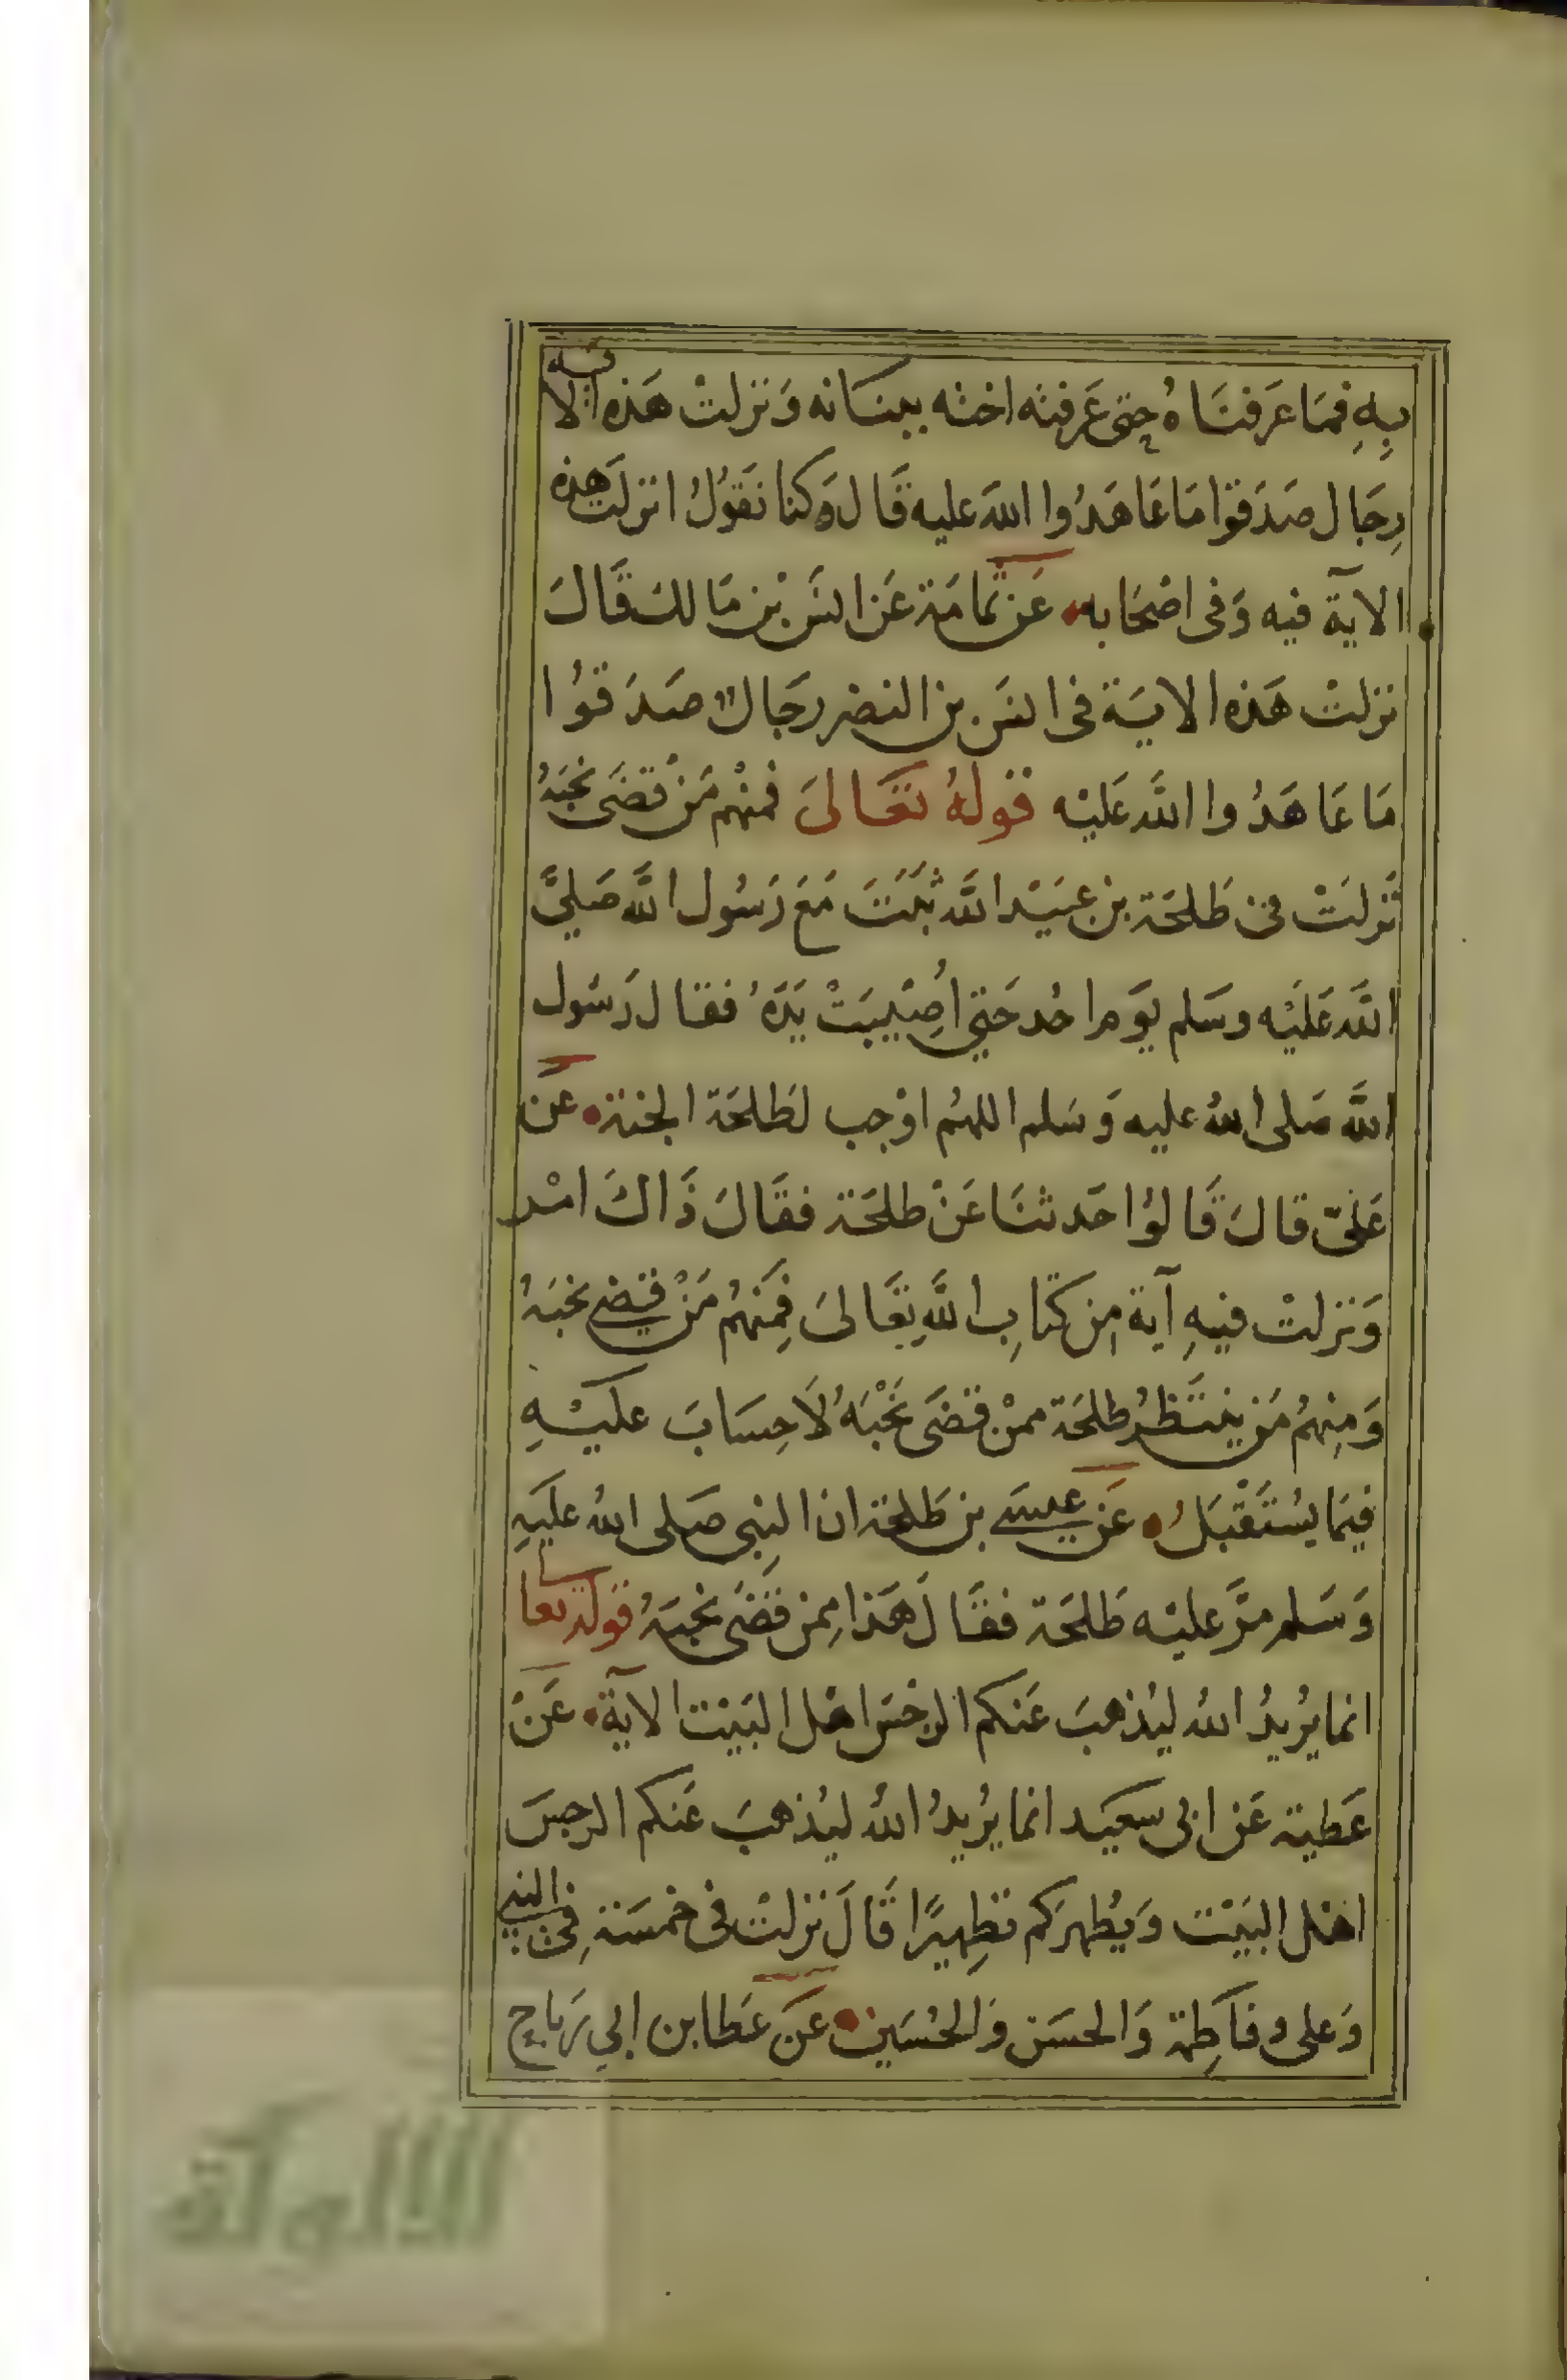 بِهِ فمَا عَرفنَاهُ حتى عَرفته اخته ببنانه وَنزلتْ هَذه الاية فيه
رِجَال صَدَقوا مَا عَاهَدُوا اللهَ عليه قَال وَكنا نَقوُلُ انزلت هذه
الآية فيه وَفى اصْحَابه عَن ثمامَة عَن انسَ بْن مَالك قَالَ
نزلتْ هَذه الايَة فى انسَ بن النضر رجَالٌ صَدَقوُا
مَا عَاهَدُوا اللَّه عَليْه قولهُ تعَالىَ فمنْهم مَنْ قضَى نحبَهُ
نَزلَتْ فى طَلحَة بن عبَيْد اللَّه ثَبَتَ مَعَ رَسُول اللَّه صَلىَّ
اللَّه عَليْه وسَلم يَوم احُد حَتىّ اُصِيْبَتْ يَدَهُ فقال رَسُول
اللَّه صَلى اللهُ عليه وَسَلم اللهُم اوْجب لطَلحَة الجنة عَن
عَلىّ قالَ قَالوُا حَدثنَا عَنْ طلحَة فقَالَ ذَاكَ امْر
وَنزلتْ فيهِ آية مِن كتَابِ اللَّهِ تعَالىَ فِمَنهُم مَنْ قضى نحبَهُ
وَمِنهمُ مَن ينتَظرُ طلحَة ممنْ قضَى نَحْبَهُ لاَ حِسَابَ عليْهِ
فيمَا يسُتَقْبَلُ عَن عيسَى بن طَلحة ان النبِى صَلى اللهُ عليَهِ
وَسَلم مَرَّ عليْه طَلحَة فقَالَ هَذا مِمن قضَى نحبَهُ قولهُ تعا
انما يُريدُ اللهُ ليُذهبَ عَنكم الرجْسَ اهْل البَيْت الآية عَنْ
عَطية عَن ابى سعيَد انما يُريدُ اللهُ ليُذهبَ عَنكم الرجسَ
اهْل البَيْت وَيُطهرَكم تطِهيرًا قَالَ نزلتْ فى خمسَة فِى النبى
وَعلى وفاطِمة وَالحسَن وَالحسُين عَنَ عَطا بن ابي رَباح
الألوكة